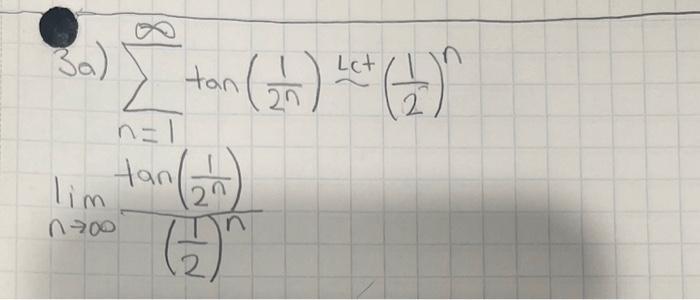 3a) ∞∑n=1 tan(1/2ⁿ) LCT ~ (1/2)ⁿ
lim n→∞ tan(1/2ⁿ) / (1/2)ⁿ